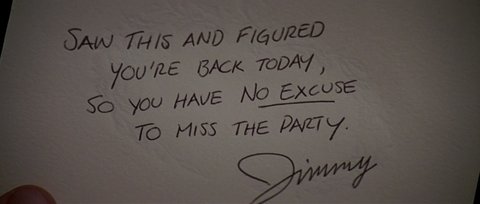 SAW THIS AND FIGURED
YOU'RE BACK TODAY,
SO YOU HAVE NO EXCUSE
TO MISS THE PARTY.
Jimmy